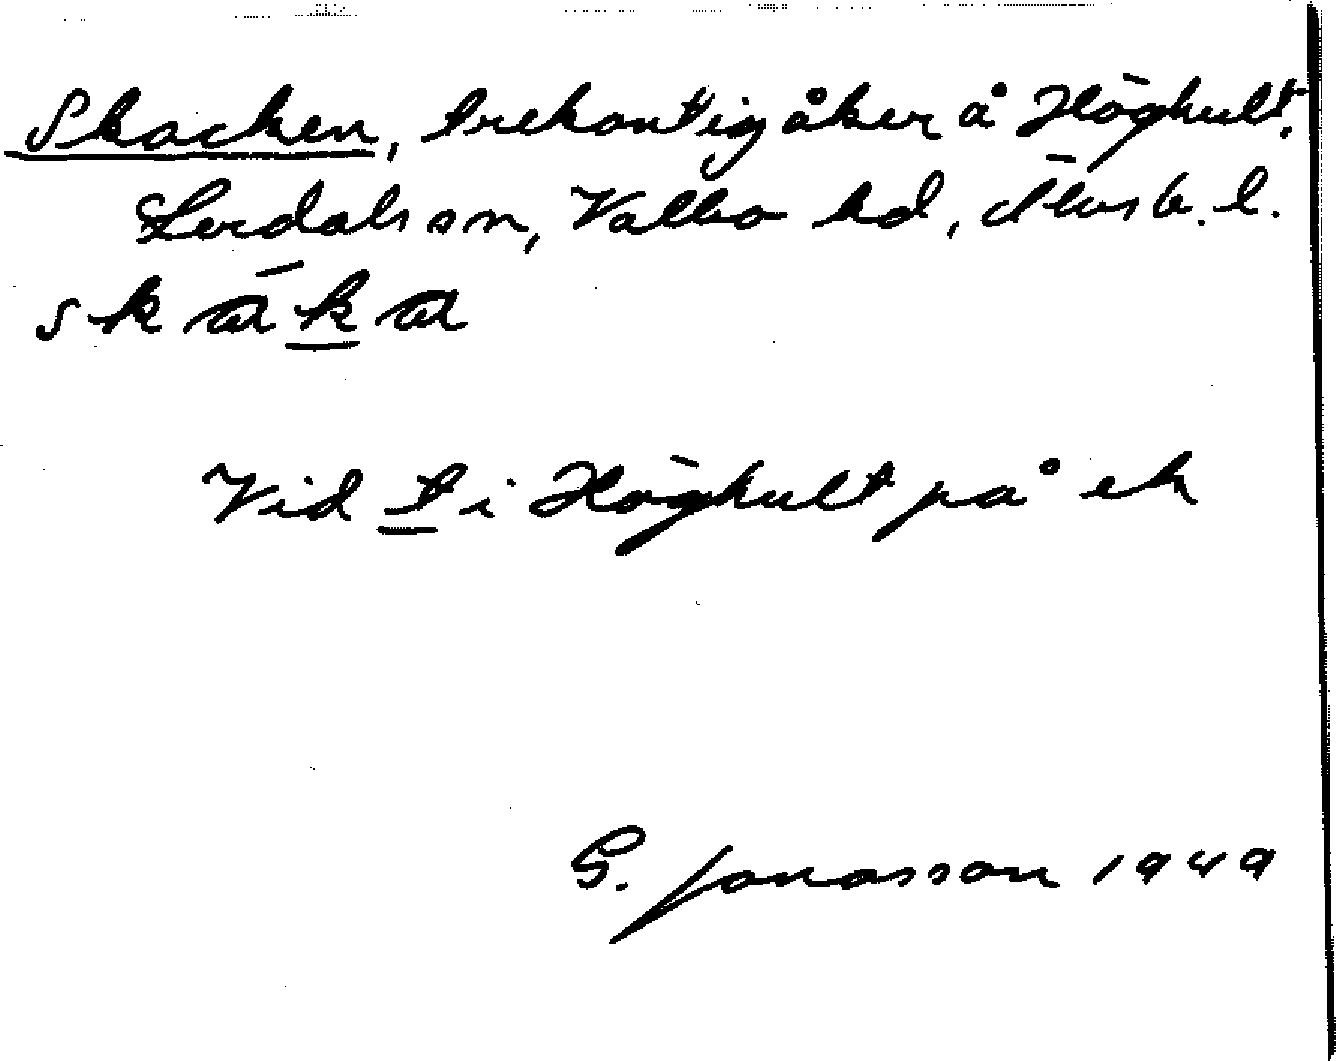 Skacken, trekantig åker å Höghult,
Lerdals sn, Valbo hd, Älvsb. l.
skaka
Vid t i Höghult på ek
G. Jonasson 1949